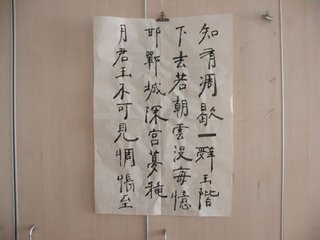 知有凋歇一辭玉階
下去若朝雲沒每憶
邯鄲城深宮夢穐
月君王不可見惆悵至